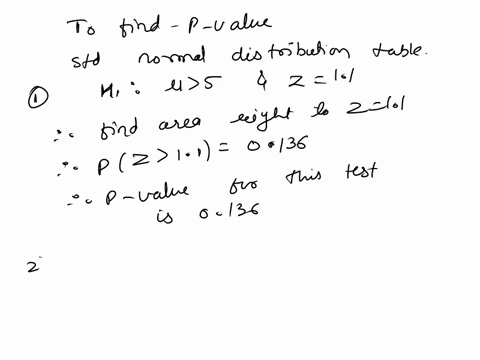 To find - P-value
std normal distribution table.
① H₁ : μ>5 & Z = 1.1
∴ find area right to Z=1.1
∴ P(Z>1.1) = 0.136
∴ P-value for this test
is 0.136
2